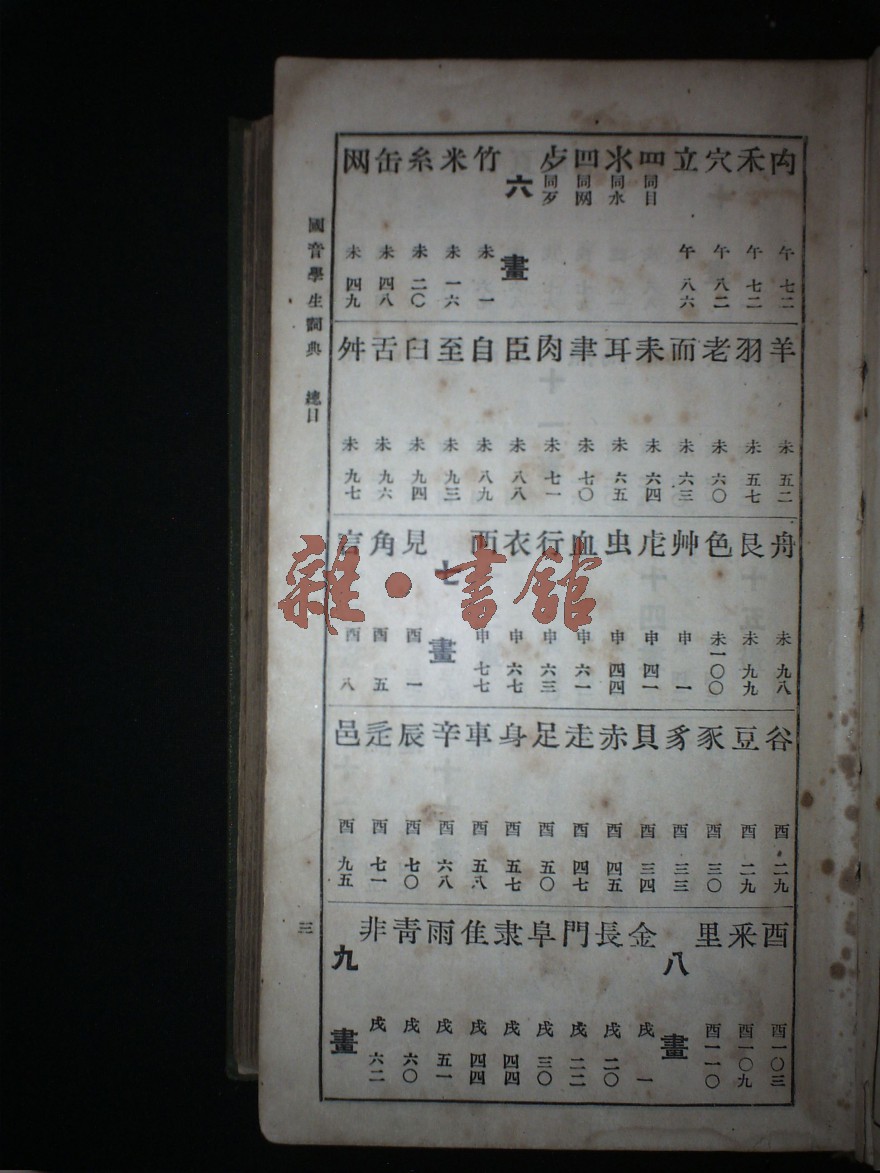 禸 午 七二
禾 午 七二
穴 午 八二
立 午 八六
罒 同目
氺 同水
罒 同网
歺 同歹
六畫
竹 未 一
米 未 一六
糸 未 二〇
缶 未 四八
网 未 四九
羊 未 五二
羽 未 五七
老 未 六〇
而 未 六三
耒 未 六四
耳 未 六五
聿 未 七〇
肉 未 七一
臣 未 八八
自 未 八九
至 未 九三
臼 未 九四
舌 未 九六
舛 未 九七
舟 未 九八
艮 未 九九
色 未 一〇〇
艸 申 一
虍 申 四一
虫 申 四四
血 申 六一
行 申 六三
衣 申 六七
襾 申 七七
七畫
見 酉 一
角 酉 五
言 酉 八
谷 酉 二九
豆 酉 二九
豕 酉 三〇
豸 酉 三三
貝 酉 三四
赤 酉 四五
走 酉 四七
足 酉 五〇
身 酉 五七
車 酉 五八
辛 酉 六八
辰 酉 七〇
辵 酉 七一
邑 酉 九五
酉 酉 一〇三
釆 酉 一〇九
里 酉 一一〇
八畫
金 戌 一
長 戌 二〇
門 戌 二二
阜 戌 三〇
隶 戌 四四
隹 戌 四四
雨 戌 五一
靑 戌 六〇
非 戌 六二
九畫
國音學生詞典 總目
三
雜·書館